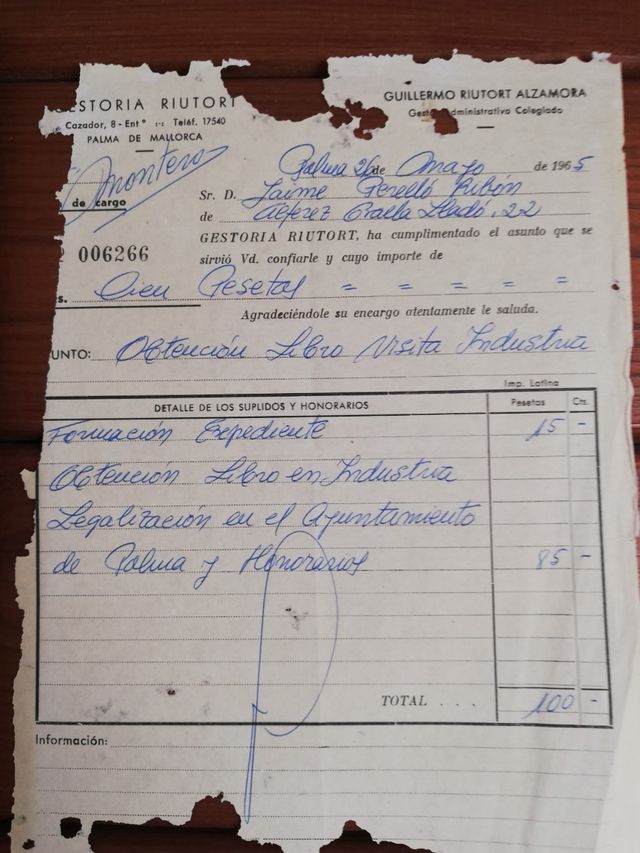 GESTORIA RIUTORT
GUILLERMO RIUTORT ALZAMORA
Cazador, 8 - Entº Teléf. 17540
Gestor Administrativo Colegiado
PALMA DE MALLORCA
Montero
Palma 26 de Mayo de 1965
de cargo
Sr. D. Jaime Perelló Ribón
de Alferez Graella Lladó, 22
006266
GESTORIA RIUTORT, ha cumplimentado el asunto que se
sirvió Vd. confiarle y cuyo importe de
s. Cien Pesetas = = = = =
Agradeciéndole su encargo atentamente le saluda.
UNTO: Obtención Libro Visita Industria
Imp. Latina
DETALLE DE LOS SUPLIDOS Y HONORARIOS Pesetas Cts.
Formación Expediente 15 -
Obtención Libro en Industria
Legalización en el Ayuntamiento
de Palma y Honorarios 85 -
TOTAL . . . 100 -
Información: